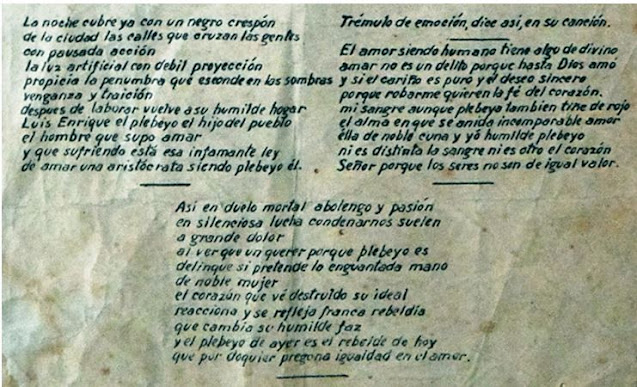 La noche cubre ya con un negro crespón
de la ciudad las calles que cruzan las gentes
con pausada acción
la luz artificial con debil proyección
propicia la penumbra que esconde en las sombras
venganza y traición
despues de laborar vuelve a su humilde hogar
Luis Enrique el plebeyo el hijo del pueblo
el hombre que supo amar
y que sufriendo está esa infamante ley
de amar una aristócrata siendo plebeyo él.
Trémulo de emoción, dice así, en su canción.
El amor siendo humano tiene algo de divino
amar no es un delito porque hasta Dios amó
y si el cariño es puro y el deseo sincero
porque robarme quieren la fé del corazón.
mi sangre aunque plebeya tambien tiñe de rojo
el alma en que se anida incomparable amor
élla de noble cuna y yó humilde plebeyo
ni es distinta la sangre ni es otro el corazón
Señor porque los seres no son de igual valor.
Asi en duelo mortal abolengo y pasión
en silenciosa lucha condenarnos suelen
a grande dolor
al ver que un querer porque plebeyo es
delinque si pretende la enguantada mano
de noble mujer
el corazón que vé destruido su ideal
reacciona y se refleja franca rebeldia
que cambia su humilde faz
y el plebeyo de ayer es el rebelde de hoy
que por doquier pregona igualdad en el amor.